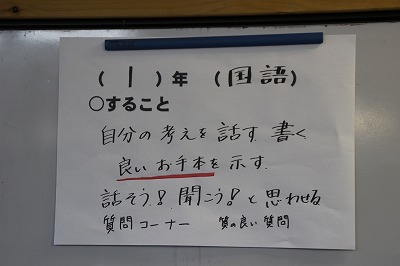 （ 1 ）年 （国語）
○すること
自分の考えを話す 書く
良いお手本を示す
話そう！聞こう！と思わせる
質問コーナー 質の良い質問